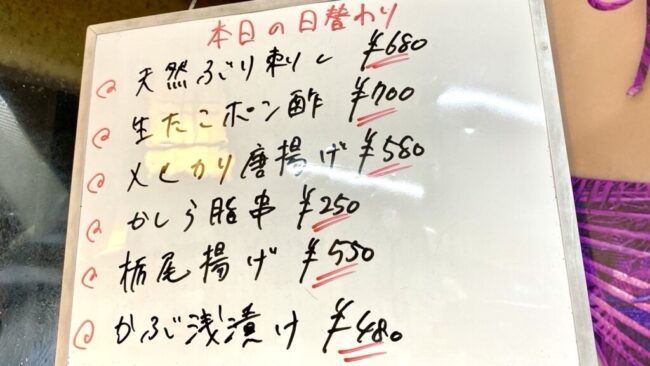 本日の日替わり
天然ぶり刺し ¥680
生たこポン酢 ¥700
メヒカリ唐揚げ ¥580
かしら脂串 ¥250
栃尾揚げ ¥550
かぶ浅漬け ¥480